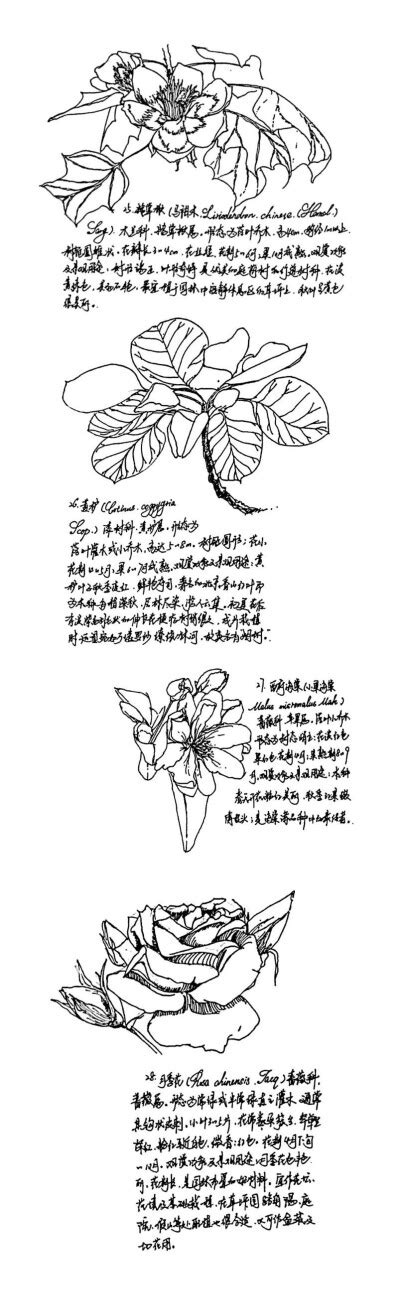 25. 鹅掌楸（马褂木 Liriodendron chinense (Hemsl.)
Sarg.）木兰科，鹅掌楸属。形态为落叶乔木，高40m，胸径1m以上
树冠圆锥状。花瓣长3~4cm，花期5~6月，果10月成熟。观赏对象
及表现用途：树形端正，叶形奇特，是优美的庭荫树和行道树材料。花淡
黄绿色，美而不艳，最宜植于园林中安静休息区的草坪上。秋叶呈黄色
很美丽。
26. 黄栌（Cotinus coggygria
Scop.）漆树科，黄栌属。形态为
落叶灌木或小乔木，高达5~8m。树冠圆形；花小
花期4~5月，果6~7月成熟。观赏对象及表现用途：黄
栌叶子秋季变红，鲜艳夺目，著名的北京香山红叶即
为本种。每值深秋，层林尽染，游人云集。初夏花后
有淡紫色羽毛状的伸长花梗宿存树梢很久，成片栽植
时，远望宛如万缕罗纱缭绕林间，故英名有“烟树”。
27. 西府海棠（小果海棠
Malus micromalus Mak.）
蔷薇科，苹果属，落叶小乔木
形态为树态峭立；花淡红色
果红色，花期4月；果熟期8~9
月。观赏对象及表现用途：本种
春天开花粉红美丽，秋季红果缀
满枝头；是海棠类品种中的
28. 月季花（Rosa chinensis Jacq.）蔷薇科，
蔷薇属。形态为常绿或半常绿直立灌木，通常
具钩状皮刺。小叶3~5片，花常数朵簇生，罕单生
深红、粉红至近白色，微香；红色。花期4月下旬
~10月。观赏对象及表现用途：月季花色艳
丽，花期长，是园林布置的好材料。宜作花坛、
花境及基础栽植，在草坪、园路角隅、庭
院、假山等处配植也很合适，又可作盆栽及
切花用。